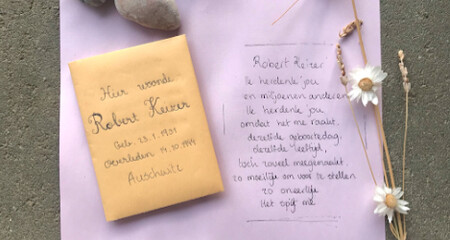 Hier woonde
Robert Keizer
Geb. 23.1.1931
Overleden 14.10.1944
Auschwitz
Robert Keizer
Ik herdenk jou
en miljoenen anderen
Ik herdenk jou
omdat het me raakt.
dezelfde geboortedag,
dezelfde leeftijd,
toch zoveel meegemaakt,
zo moeilijk om voor te stellen
zo oneerlijk
Het spijt me.